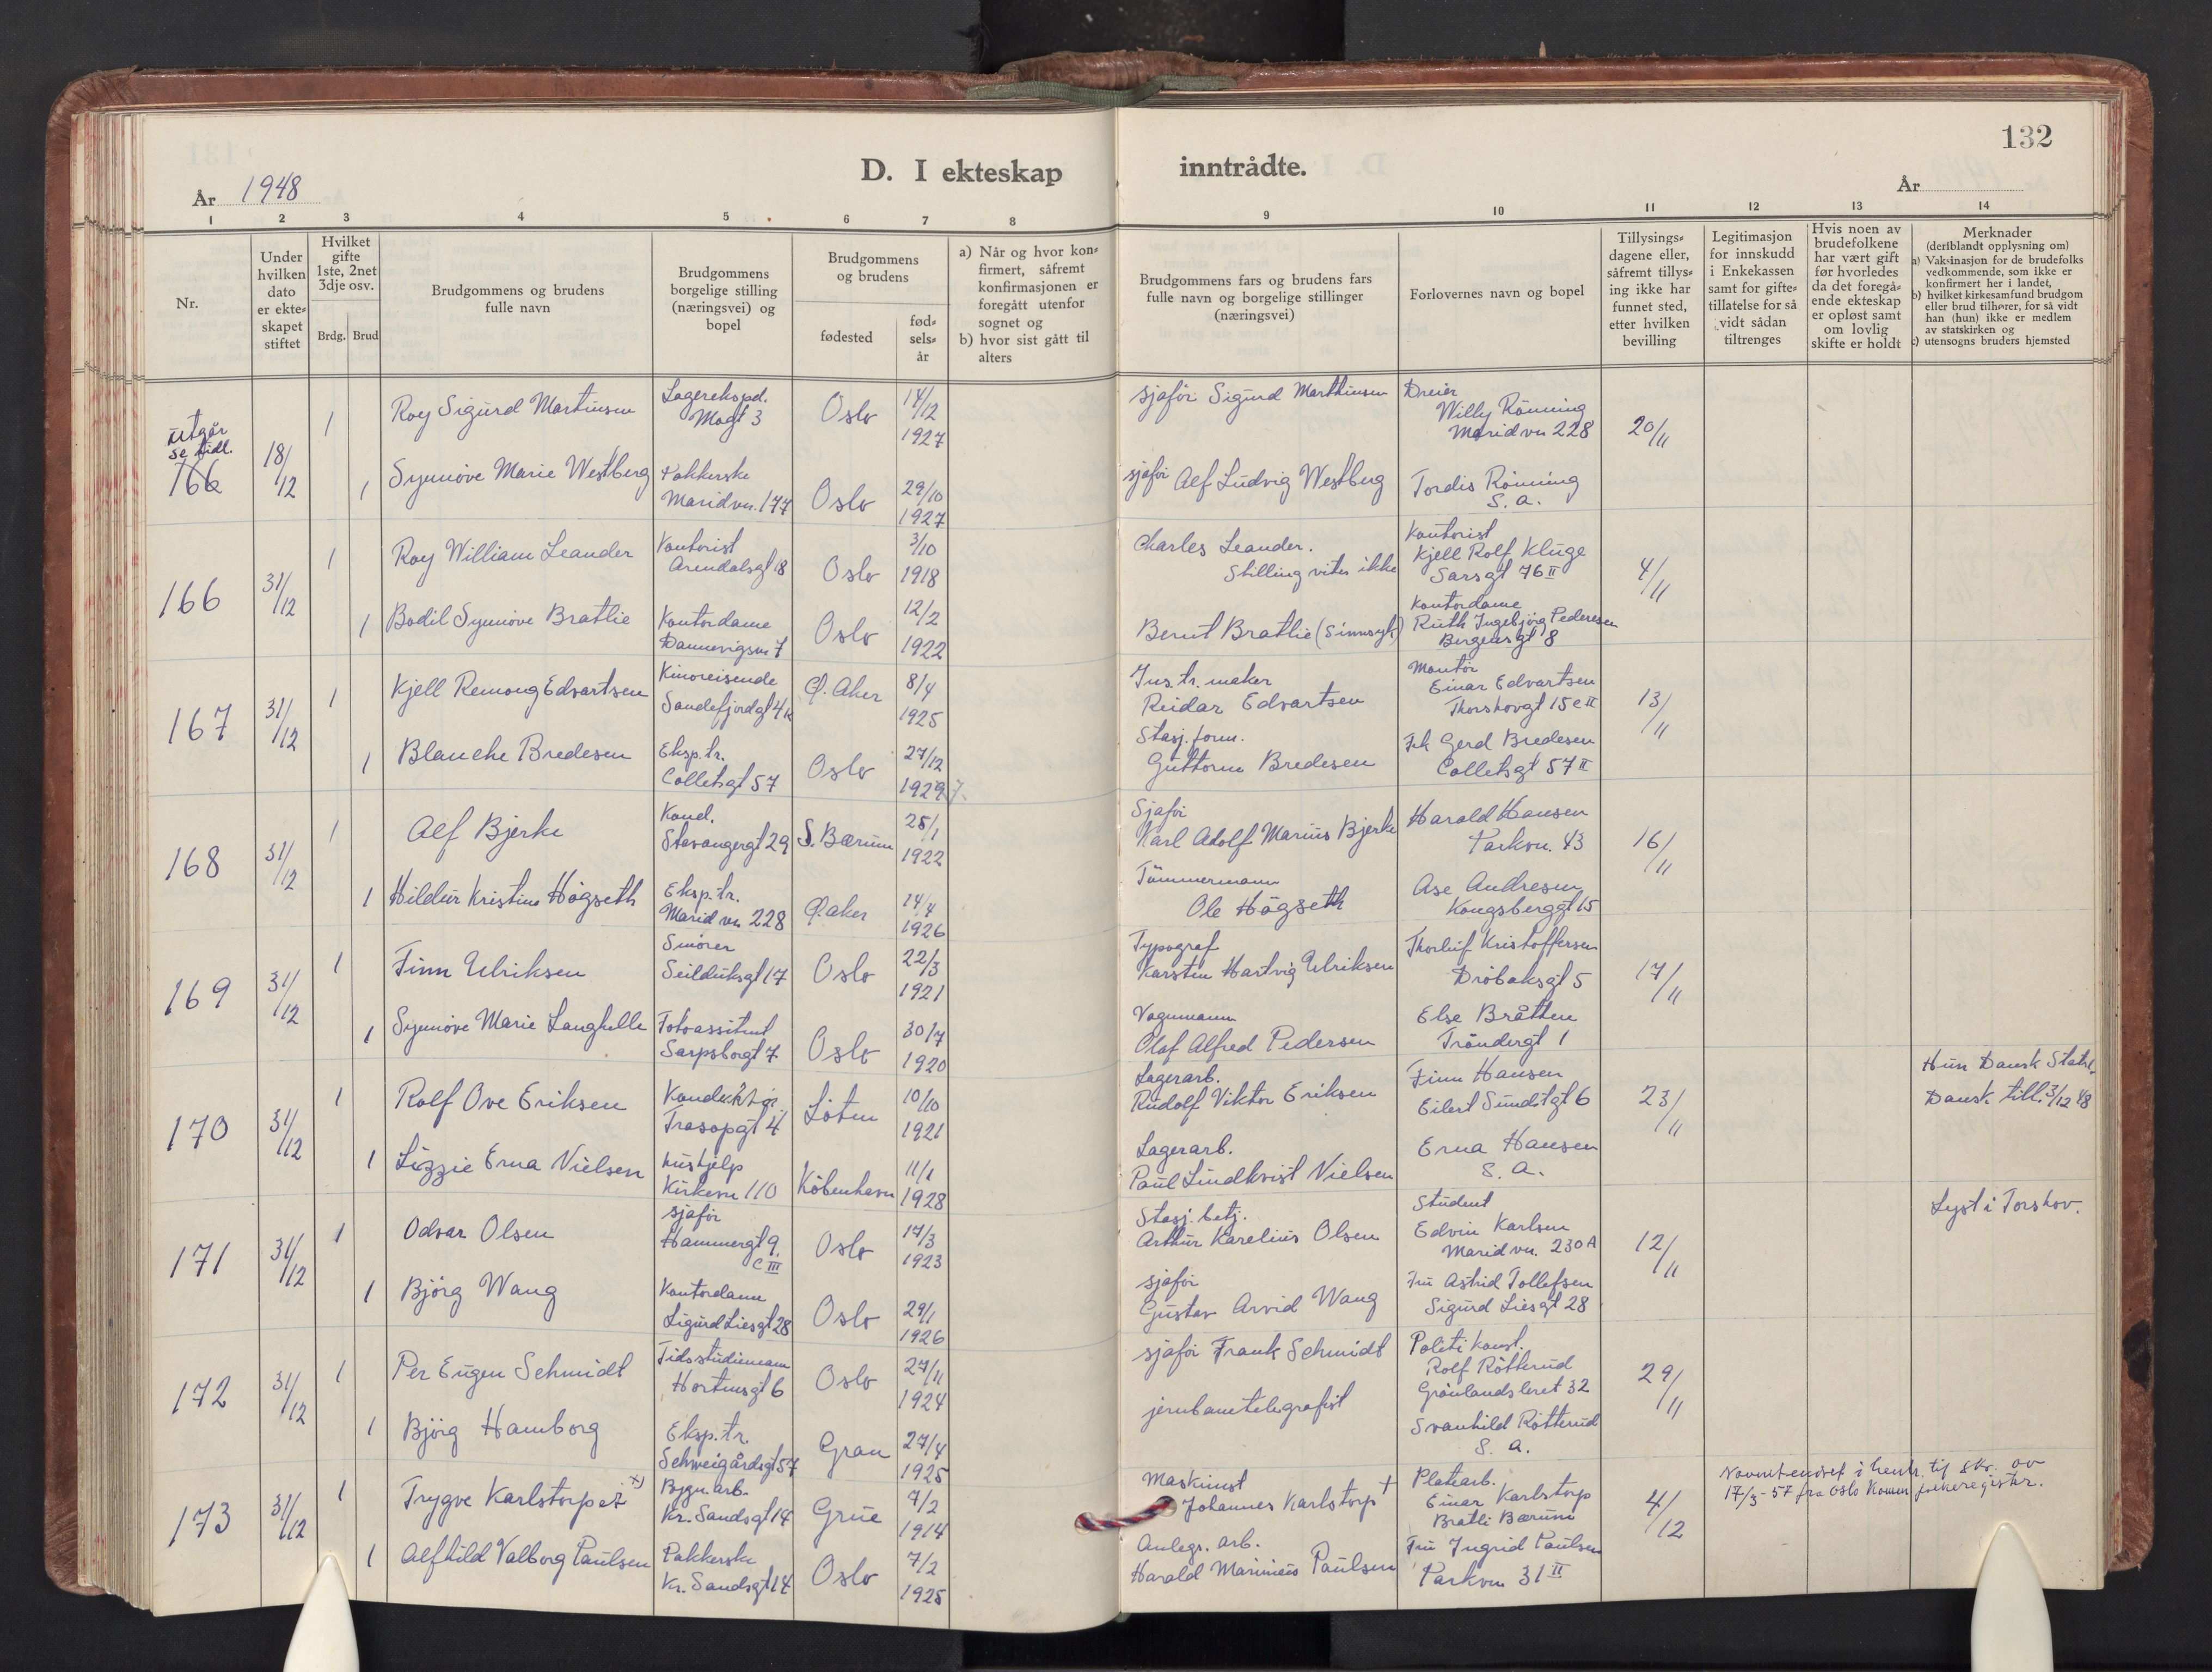 132
D. I ekteskap inntrådte.
År 1948
År
1 2 3 4 5 6 7 8 9 10 11 12 13 14
Nr.
Under
hvilken
dato
er ekte-
skapet
stiftet
Hvilket
gifte
1ste, 2net
3dje osv.
Brdg. Brud
Brudgommens og brudens
fulle navn
Brudgommens
borgelige stilling
(næringsvei) og
bopel
Brudgommens
og brudens
fødested
fød-
sels-
år
a) Når og hvor kon-
firmert, såfremt
konfirmasjonen er
foregått utenfor
sognet og
b) hvor sist gått til
alters
Brudgommens fars og brudens fars
fulle navn og borgelige stillinger
(næringsvei)
Forlovernes navn og bopel
Tillysings-
dagene eller,
såfremt tillys-
ing ikke har
funnet sted,
etter hvilken
bevilling
Legitimasjon
for innskudd
i Enkekassen
samt for gifte-
tillatelse for så
vidt sådan
tiltrenges
Hvis noen av
brudefolkene
har vært gift
før hvorledes
da det foregå-
ende ekteskap
er opløst samt
om lovlig
skifte er holdt
Merknader
(deriblandt opplysning om)
a) Vaksinasjon for de brudefolks
vedkommende, som ikke er
konfirmert her i landet,
b) hvilket kirkesamfund brudgom
eller brud tilhører, for så vidt
han (hun) ikke er medlem
av statskirken og
c) utensogns bruders hjemsted
Utgår
se tidl.
166
18/12
1
Roy Sigurd Martinsen
Lagerekspd.
Mogt 3
Oslo
14/12
1927
sjafør Sigurd Marthinsen
Dreier
Willy Rönning
Marid vn 228
20/11
1
Synnöve Marie Westberg
Pakkerske
Maridvn. 177
Oslo
29/10
1927
sjafør Alf Ludvig Westberg
Tordis Rönning
S. a.
166
31/12
1
Roy William Leander
Kontorist
Arendalsgt 18
Oslo
3/10
1918
Charles Leander.
Stilling vites ikke
Kontorist
Kjell Rolf Kluge
Sarsgt 76 II
4/11
1
Bodil Synnöve Bratlie
Kontordame
Dannevigsvn 7
Oslo
12/2
1922
Bernt Bratlie (Sinnsyk)
Kontordame
Ruth Ingebjörg Pedersen
Bergensgt 8
167
31/12
1
Kjell Remong Edvartsen
Kinoreisende
Sandefjordgt 4k
Ø. Aker
8/4
1925
Instr. maker
Reidar Edvartsen
Montör
Einar Edvartsen
Thorshovgt 15 c II
13/11
1
Blanche Bredesen
Eksp. tr.
Colletsgt 57
Oslo
27/12
1929 7.
Stasj. form.
Guttorm Bredesen
Frk Gerd Bredesen
Colletsgt 57 II
168
31/12
1
Alf Bjerke
Kond.
Stavangergt 29
S. Bærum
25/1
1922
Sjafør
Karl Adolf Marius Bjerke
Harald Hansen
Parkvn. 43
16/11
1
Hildur Kristine Högseth
Eksp. tr.
Marid vn 228
Ø. aker
14/4
1926
Tömmermann
Ole Högseth
Ase Andresen
Kongsberggt 15
169
31/12
1
Finn Ulriksen
Smörer
Seilduksgt 17
Oslo
22/3
1921
Typograf
Karsten Hartvig Ulriksen
Thorleif Kristoffersen
Dröbaksgt 5
17/11
1
Synnöve Marie Langhelle
Fotoassitent
Sarpsborgt 7
Oslo
30/7
1920
Vognmann
Olaf Alfred Pedersen
Else Bråtten
Tröndergt 1
170
31/12
1
Rolf Ove Eriksen
Konduktör
Trasopgt 4
Löten
10/10
1921
Lagerarb.
Rudolf Viktor Eriksen
Finn Hansen
Eilert Sundtgt 6
23/11
Hun Dansk Statsb.
Dansk till. 3/12 48
1
Lizzie Erna Nielsen
hushjelp
Kirkevn 110
Köbenhavn
11/1
1928
Lagerarb.
Paul Lindkvist Nielsen
Erna Hansen
S. a.
171
31/12
1
Odvar Olsen
sjafør
Hammergt 9.
C III
Oslo
17/3
1923
Stasj. betj.
Arthur Karelius Olsen
Student
Edvin Karlsen
Marid vn. 230 A
12/11
Lyst i Torshov.
1
Björg Wang
Kontordame
Sigurd Liesgt 28
Oslo
29/1
1926
sjafør
Gustav Arvid Wang
Fru Astrid Tollefsen
Sigurd Liesgt 28
172
31/12
1
Per Eugen Schmidt
Tidsstudiemann
Hortensgt 6
Oslo
27/11
1924
sjafør Frank Schmidt
Politi konst.
Rolf Rötterud
Grönlandsleret 32
29/11
1
Björg Hamborg
Eksp. tr.
Schweigårdsgt 57
Gran
27/4
1925
jernbanetelegrafist
Svanhild Rötterud
S. a.
173
31/12
1
Trygve Karlstorpet x)
Bygn. arb.
Kr. Sandsgt 14
Grue
7/2
1914
Maskinist
Johannes Karlstorp +
Platearb.
Einar Karlstorp
Bratli Bærum
4/12
Navnet endret i henh. til skr. av
17/3-57 fra Oslo Komm. folkeregister.
1
Alfhild Valborg Paulsen
Pakkerske
Kr. Sandsgt 14
Oslo
7/2
1925
Anlegs. arb.
Harald Marinius Paulsen
Fru Ingrid Paulsen
Parkvn 31 II